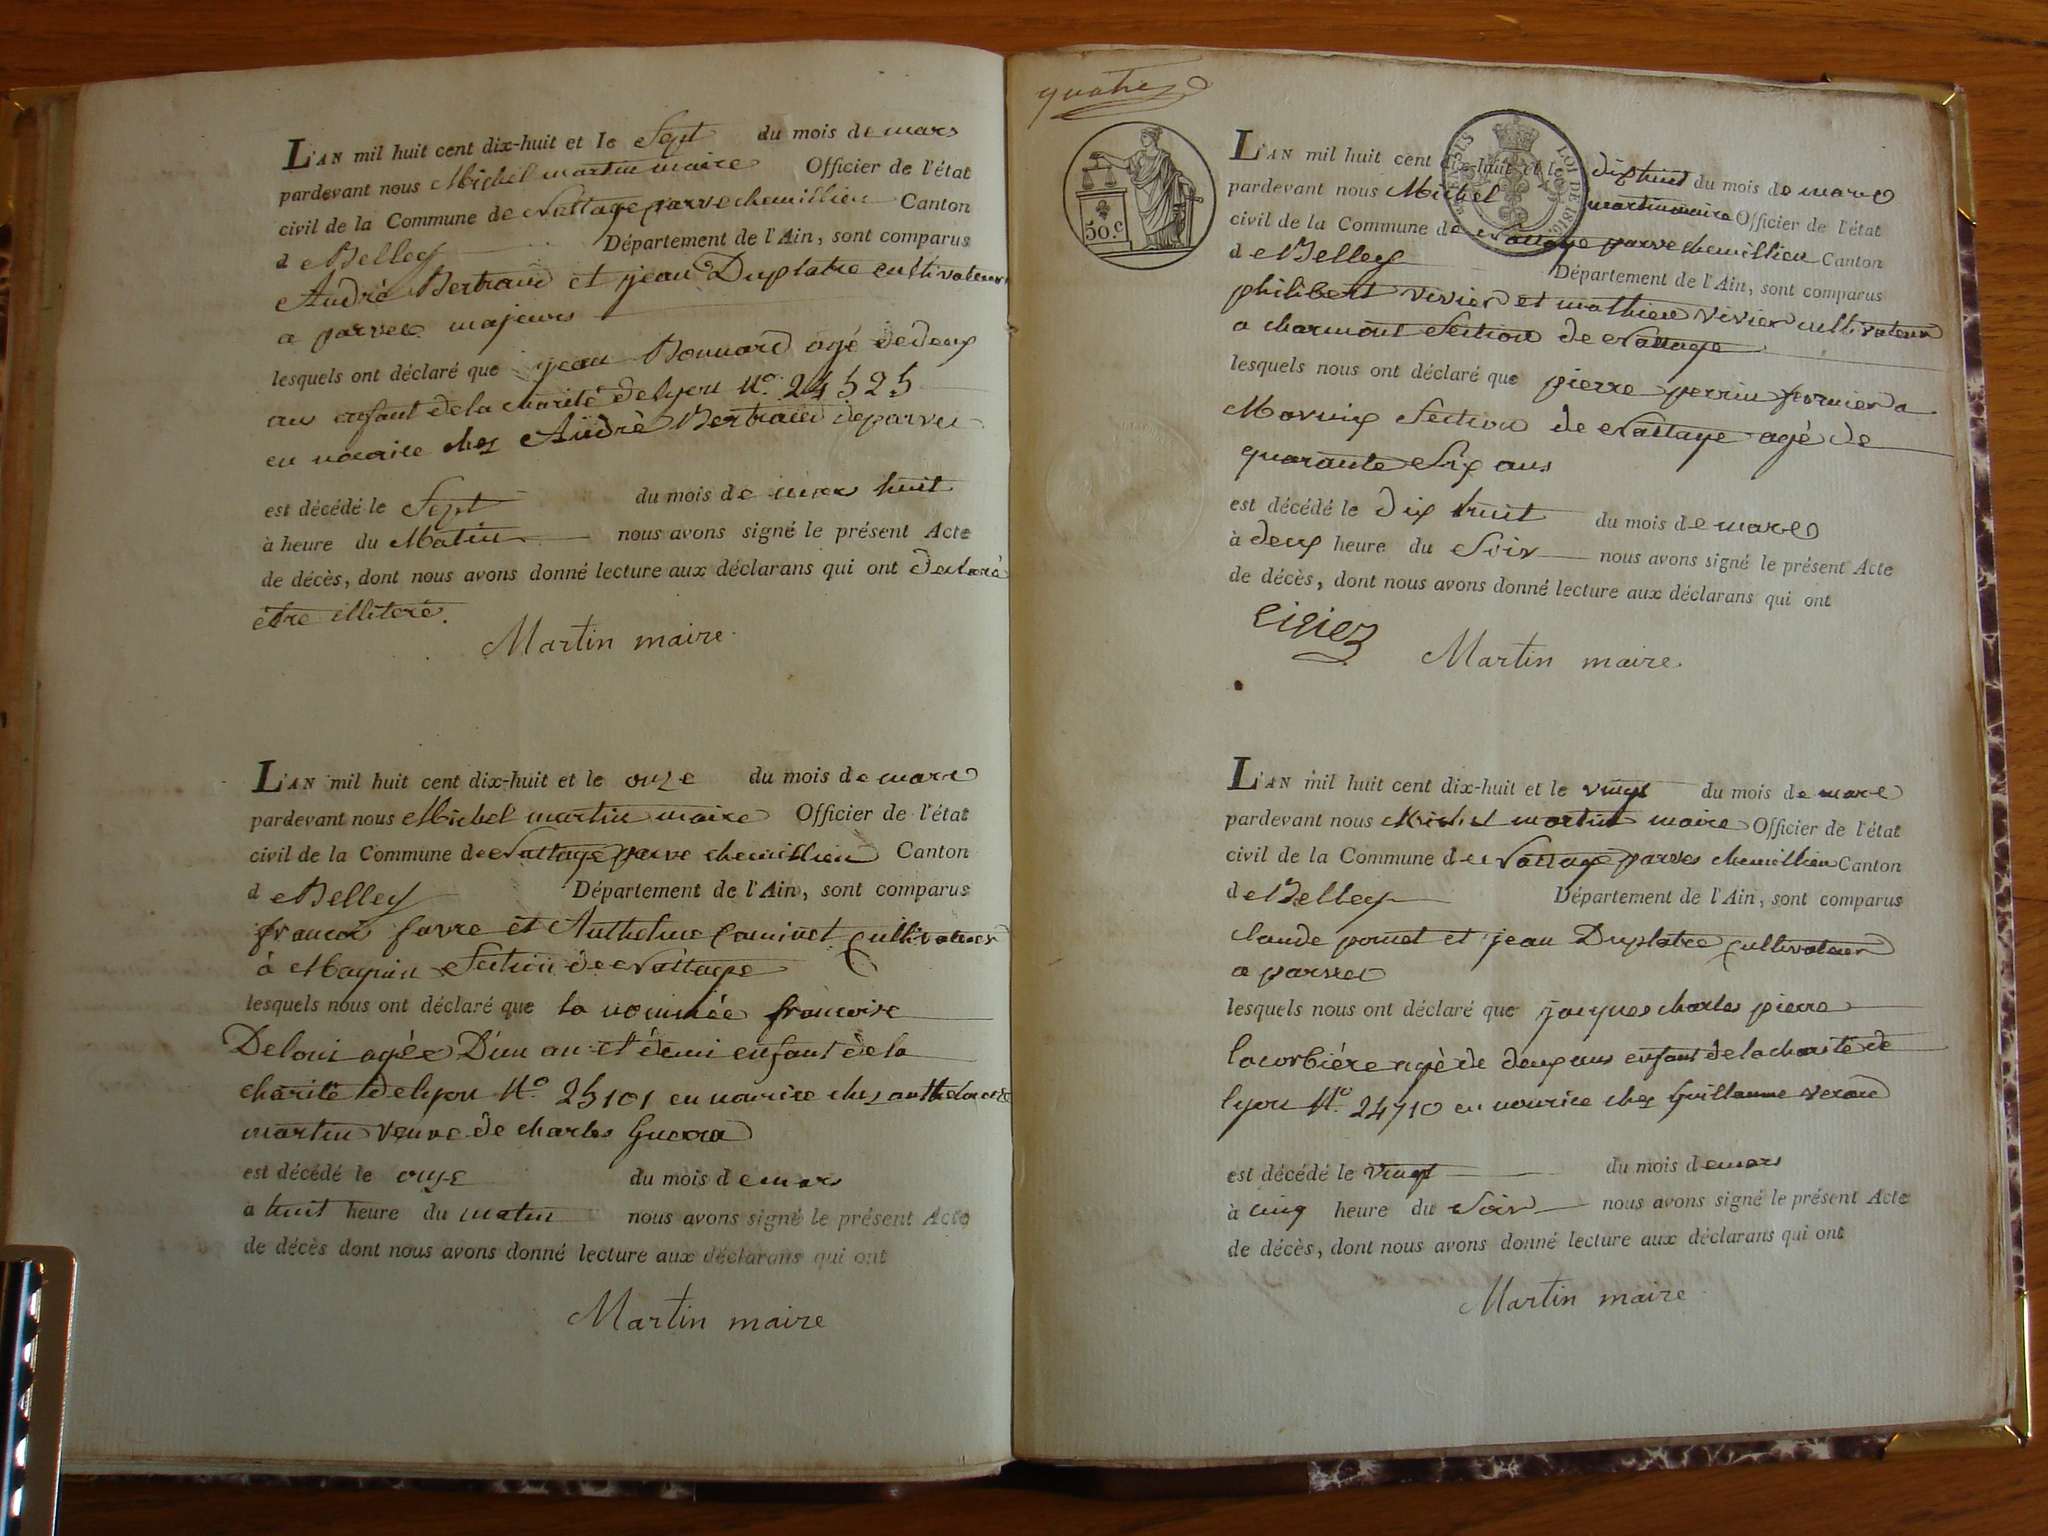 L'AN mil huit cent dix-huit et le Sept du mois de mars
pardevant nous Michel martin maire Officier de l'état
civil de la Commune de Nattage parve chemillieu Canton
de Belley Département de l'Ain, sont comparus
André Bertrand et jean Duplatre cultivateurs
a parves majeurs
lesquels ont déclaré que jean Bonnard agé de deux
ans enfant de la charité de lyon N.o 24525
en nourice chez André Bertrand de parves
est décédé le Sept du mois de mars huit
à heure du Matin nous avons signé le présent Acte
de décès, dont nous avons donné lecture aux déclarans qui ont declaré
être illiteré.
Martin maire.
L'AN mil huit cent dix-huit et le onze du mois de mars
pardevant nous Michel martin maire Officier de l'état
civil de la Commune de Nattage parve chemillieu Canton
de Belley Département de l'Ain, sont comparus
francois favre et Anthelme Cultivateur
à Section de Nattage
lesquels nous ont déclaré que la nommée francoise
agée D'un an et demi enfant de la
charité de lyon N.o 25101 en nourice chez
martin veuve de charles
est décédé le onze du mois de mars
à huit heure du matin nous avons signé le présent Acte
de décès dont nous avons donné lecture aux déclarans qui ont
Martin maire
quatre
50.C
LOI DE 1816.
L'AN mil huit cent dix-huit et le dix huit du mois de mars
pardevant nous Michel martin maire Officier de l'état
civil de la Commune de Nattage parve chemillieu Canton
de Belley Département de l'Ain, sont comparus
philibert vivier et mathieu vivier cultivateur
a charmont Section de Nattage
lesquels nous ont déclaré que pierre perrin fermier a
Section de Nattage agé de
quarante Six ans
est décédé le dix huit du mois de mars
à deux heure du Soir nous avons signé le présent Acte
de décès, dont nous avons donné lecture aux déclarans qui ont
Martin maire.
L'AN mil huit cent dix-huit et le vingt du mois de mars
pardevant nous Michel martin maire Officier de l'état
civil de la Commune de Nattage parves chemillieu Canton
de Belley Département de l'Ain, sont comparus
claude et jean Duplatre cultivateur
a parves
lesquels nous ont déclaré que jacques charles pierre
lacorbiére agé de deux ans enfant de la charité de
lyon N.o 24710 en nourice chez Guillaume
est décédé le vingt du mois de mars
à cinq heure du Soir nous avons signé le présent Acte
de décès, dont nous avons donné lecture aux déclarans qui ont
Martin maire